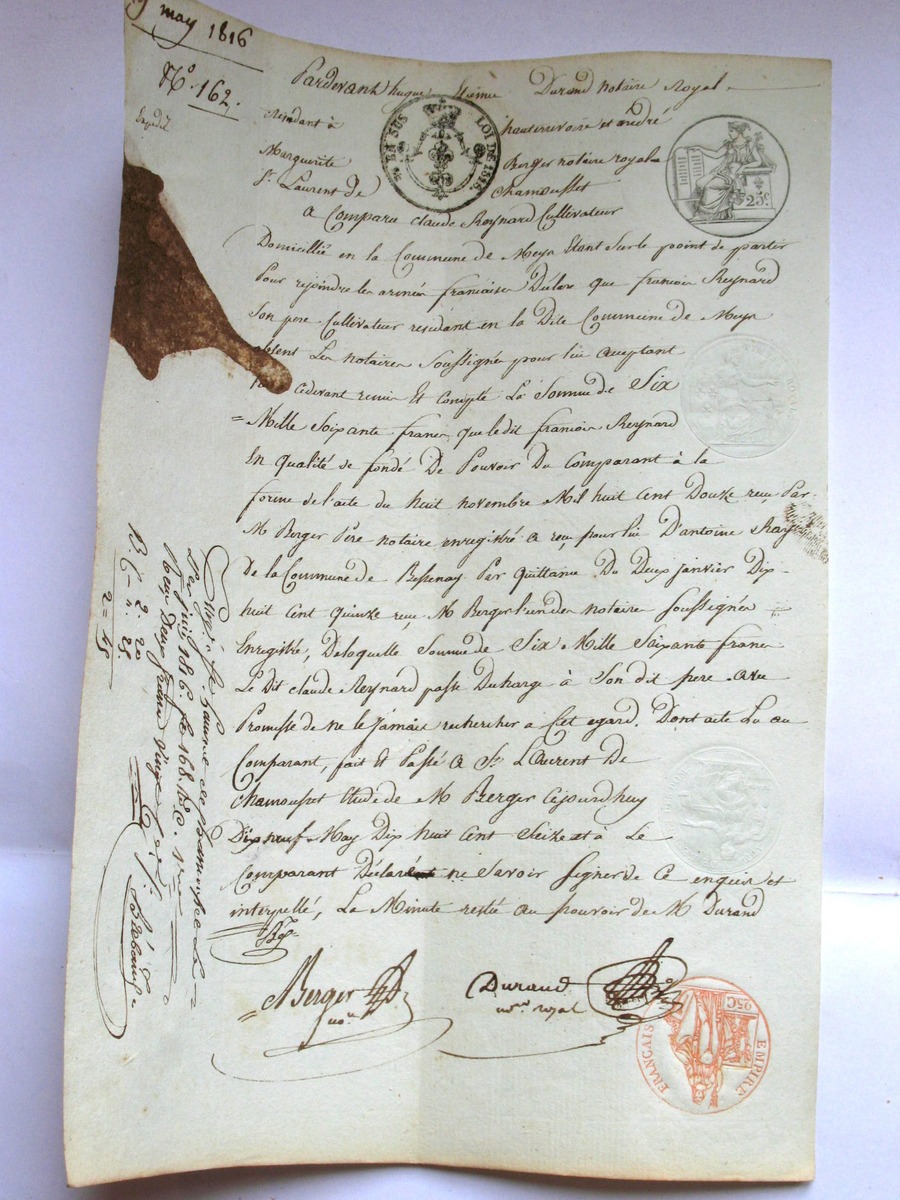 9 may 1816
N.º 162.
Pardevant hugues Etienne Durand notaire Royal
Residant à hauterivoire et andré
Marguerite Berger notaire royal a
S.t Laurent de Chamousset
A Comparu claude Reynard Cultivateur
Domicillié en la Commune de Meys Etant Sur le point de partir
Pour rejoindre les armées françaises Déclare que françois Reynard
Son pere Cultivateur residant en la Dite Commune de Meys
Les notaires Soussignés pour lui acceptant
cidevant remis Et compté La Somme de Six
Mille Soixante francs que ledit françois Reynard
En qualité de fondé De Pouvoir Du Comparant à la
forme de l'acte du huit novembre Mil huit Cent Douze reçu Par
M Berger Père notaire enregistré a reçu pour lui D'antoine
De la Commune de Bessenay Par Quittance Du Deux janvier Dix
huit Cent Quinze reçu M Berger l'un des notaires soussignés
Enregistré, De laquelle Somme de Six Mille Soixante francs
Le Dit claude Reynard passe Decharge à Son dit pere avec
Promesse de ne le jamais rechercher a Cet egard. Dont acte Lu au
Comparant, fait et Passé A St. Laurent De
Chamousset Etude de M Berger Cejourdhuy
Dix neuf May Dix huit Cent Seize et à Le
Comparant Déclaré ne Savoir Signer de Ce enquis et
interpellé, La Minute restée au pouvoir de M Durand
Berger
Durand
no.re royal
EN SUS
LOI DE 1816.
25c
EMPIRE
FRANÇAIS
25C
2. 20